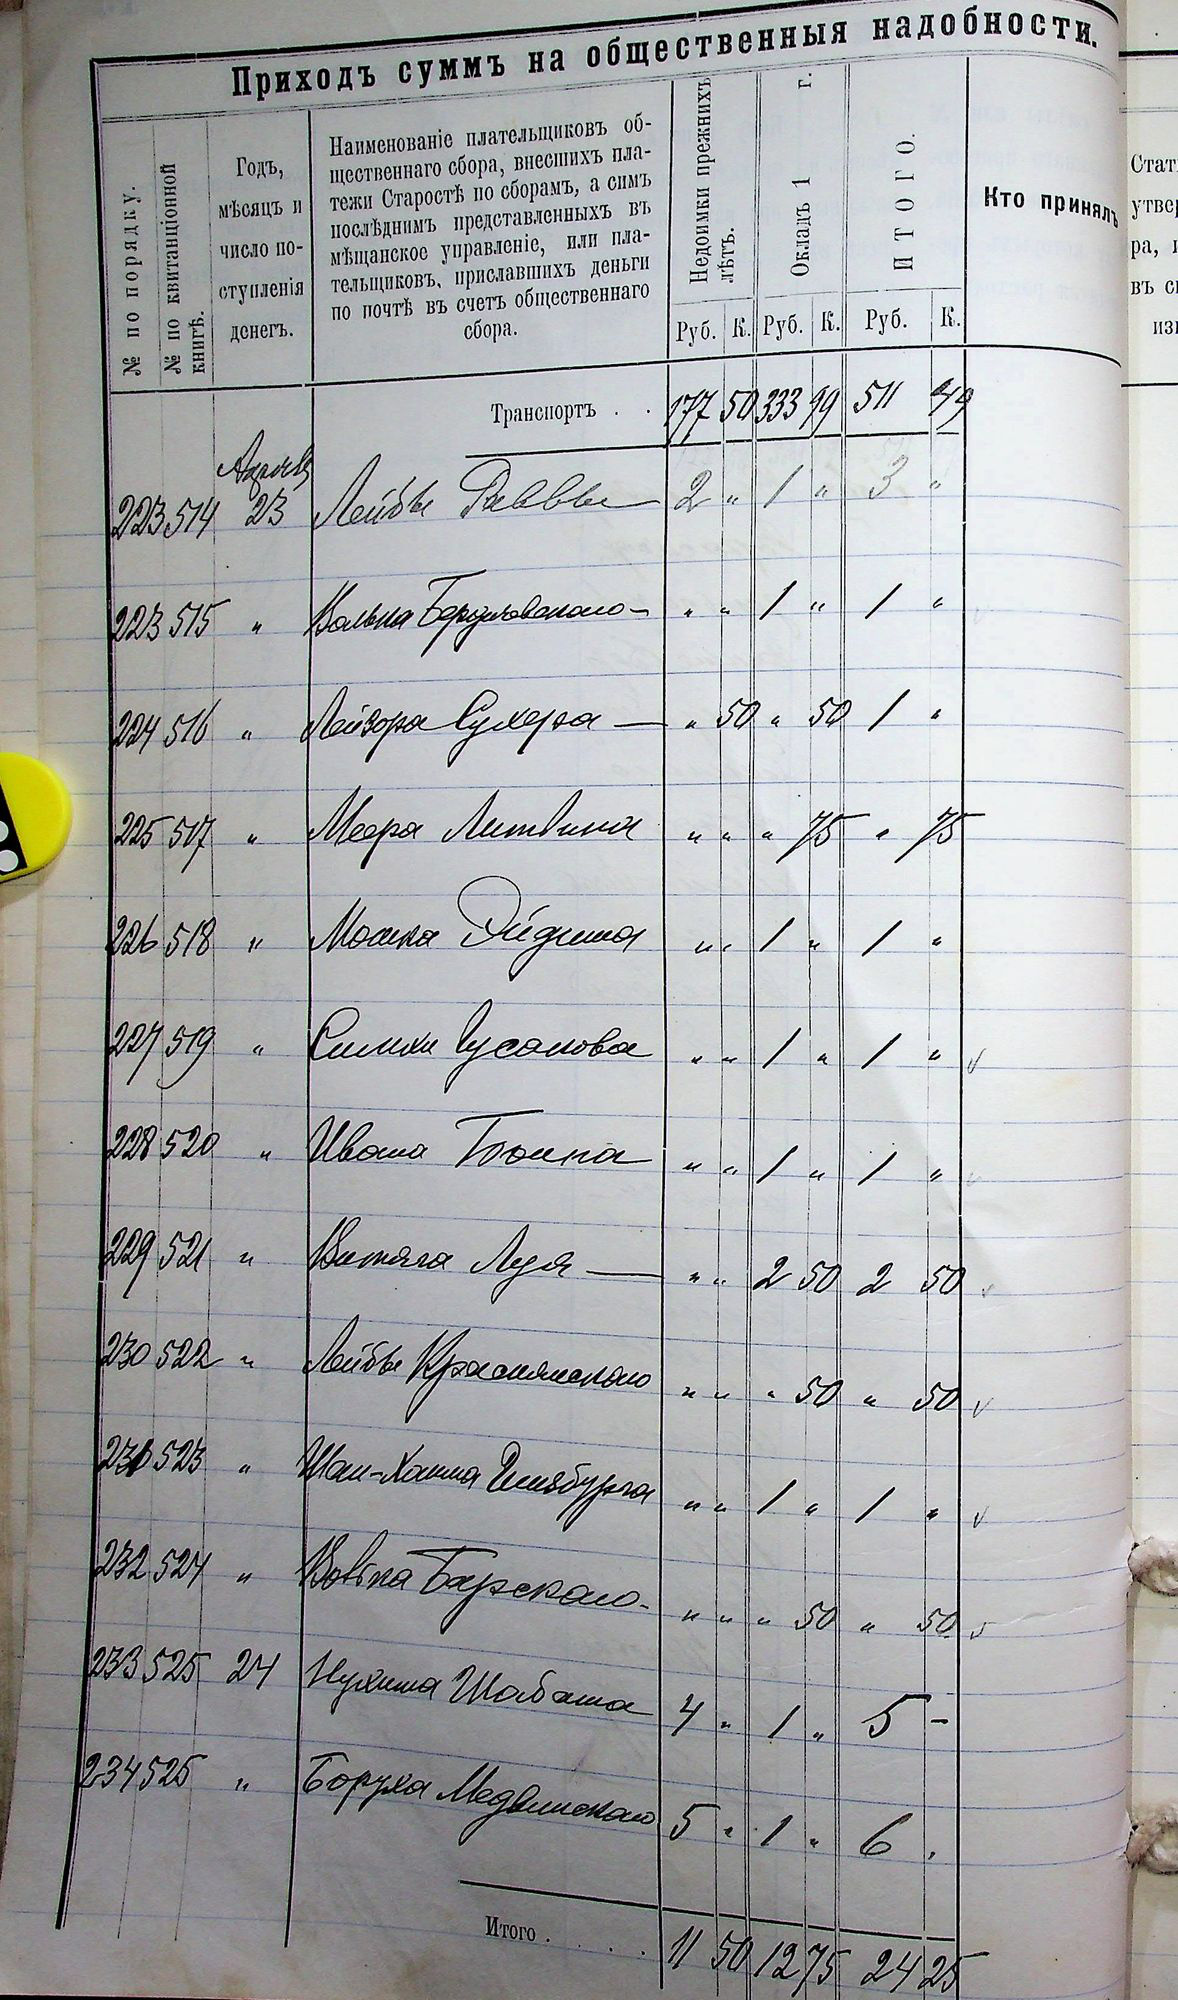 Приходъ суммъ на общественныя надобности.
№ по порядку.
№ по квитанціонной книгѣ.
Годъ,
мѣсяцъ и
число по-
ступленія
денегъ.
Наименованіе плательщиковъ об-
щественнаго сбора, внесшихъ пла-
тежи Старостѣ по сборамъ, а симъ
послѣднимъ представленныхъ въ
мѣщанское управленіе, или пла-
тельщиковъ, приславшихъ деньги
по почтѣ въ счетъ общественнаго
сбора.
Недоимки прежнихъ лѣтъ.
Окладъ 1 г.
ИТОГО.
Кто принялъ
Руб. К. Руб. К. Руб. К.
Транспортъ . . 177 50 333 99 511 49
223 514 23 Лейбы 2 " 1 " 3 "
223 515 " Волька " " 1 " 1 "
224 516 " Лейзора Сухера — " 50 " 50 1 "
225 517 " Меера Литвина " " " 75 " 75
226 518 " Мошка Эйдиша " " 1 " 1 "
227 519 " Симхи Гусакова " " 1 " 1 "
228 520 " Ивана " " 1 " 1 "
229 521 " Луя — " " 2 50 2 50
230 522 " Лейбы Краснянского " " " 50 " 50
231 523 " Гинзбурга " " 1 " 1 "
232 524 " Вовка Барского - " " " 50 " 50
233 525 24 Нухима Шабаша 4 " 1 " 5 –
234 525 " Боруха Медвинского 5 " 1 " 6 "
Итого . . . . 11 50 12 75 24 25
Стат
утвер
ра, и
въ с
из